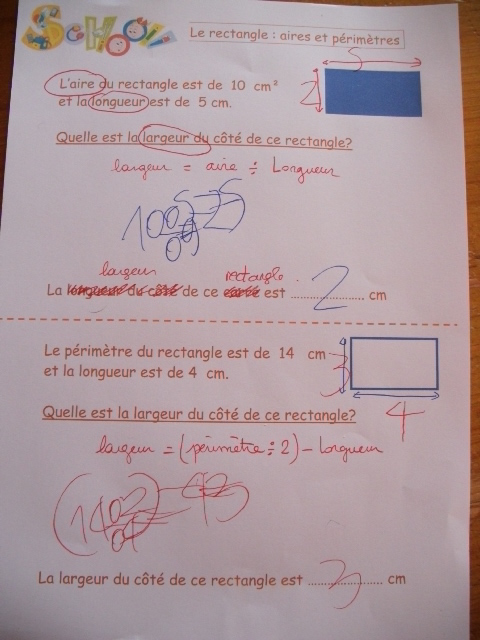 SCHOOL
Le rectangle : aires et périmètres
5
L'aire du rectangle est de 10 cm²
et la longueur est de 5 cm.
2
Quelle est la largeur du côté de ce rectangle?
largeur = aire ÷ Longueur
largeur rectangle
La longueur du côté de ce carré est 2 cm
Le périmètre du rectangle est de 14 cm
et la longueur est de 4 cm.
3
4
Quelle est la largeur du côté de ce rectangle?
largeur = (périmètre ÷ 2) - Longueur
La largeur du côté de ce rectangle est 3 cm